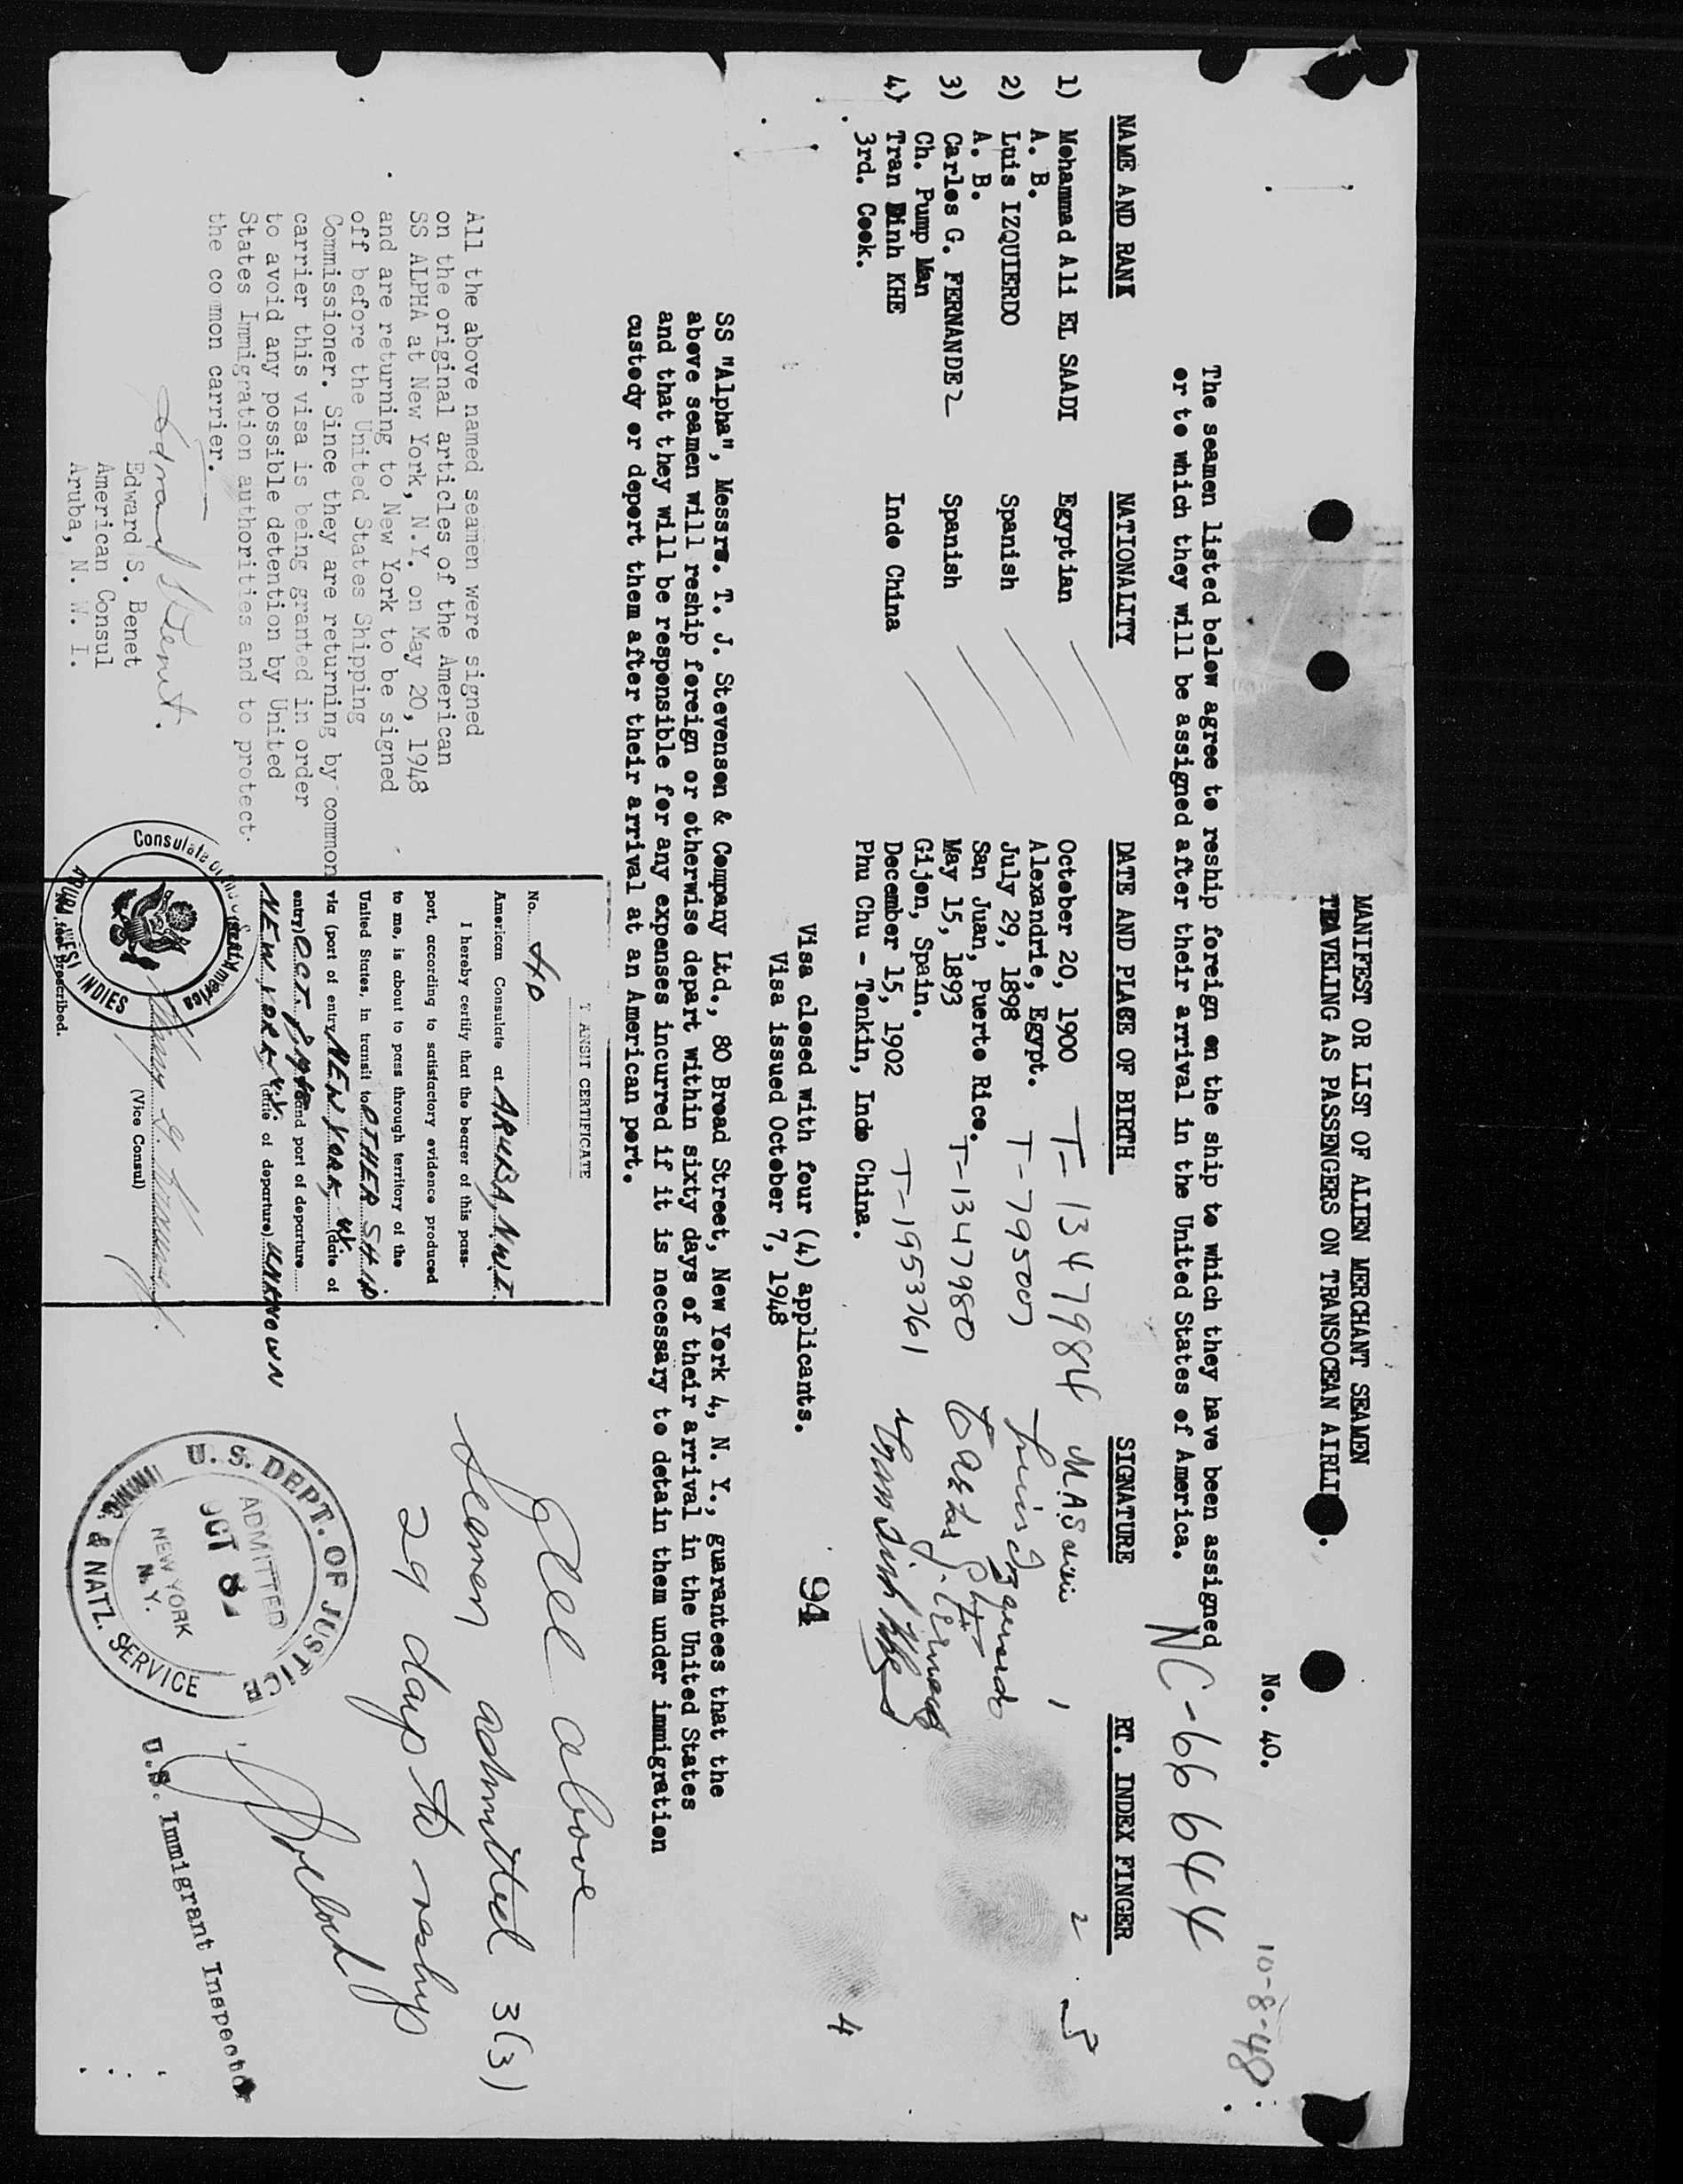 MANIFEST OR LIST OF ALIEN MERCHANT SEAMEN
TRAVELING AS PASSENGERS ON TRANSOCEAN AIRLI
No. 40.
10-8-48
The seamen listed below agree to reship foreign on the ship to which they have been assigned
or to which they will be assigned after their arrival in the United States of America.
NC-66644
NAME AND RANK NATIONALITY DATE AND PLACE OF BIRTH SIGNATURE RT. INDEX FINGER
1) Mohammad Ali EL SAADI Egyptian October 20, 1900 T-1347984 1 2 3
A. B. Alexandrie, Egypt.
2) Luis IZQUIERDO Spanish July 29, 1898 T-795007 Luis Izquierdo
A. B. San Juan, Puerto Rico.
3) Carles G. FERNANDEZ Spanish May 15, 1893 T-1347980
Ch. Pump Man Gijon, Spain.
4) Tran Dinh KHE Indo China December 15, 1902 T-1953761 Tran Dinh Khe
3rd. Cook. Phu Chu - Tonkin, Indo China.
4
Visa closed with four (4) applicants.
Visa issued October 7, 1948
94
SS "Alpha", Messrs. T. J. Stevenson & Company Ltd., 80 Broad Street, New York 4, N. Y., guarantees that the
above seamen will reship foreign or otherwise depart within sixty days of their arrival in the United States
and that they will be responsible for any expenses incurred if it is necessary to detain them under immigration
custody or deport them after their arrival at an American port.
All the above named seamen were signed
on the original articles of the American
SS ALPHA at New York, N.Y. on May 20, 1948
and are returning to New York to be signed
off before the United States Shipping
Commissioner. Since they are returning by common
carrier this visa is being granted in order
to avoid any possible detention by United
States Immigration authorities and to protect
the common carrier.
Edward S. Benet
Edward S. Benet
American Consul
Aruba, N. W. I.
T ANSIT CERTIFICATE
No. 40
American Consulate at ARUBA, N.W.I.
I hereby certify that the bearer of this pass-
port, according to satisfactory evidence produced
to me, is about to pass through territory of the
United States, in transit to OTHER SHIP
via (port of entry) NEW YORK, N.Y. (date of
entry) OCT 1948 and port of departure
NEW YORK, N.Y. (date of departure) UNKNOWN
(Vice Consul)
No fee prescribed.
Consulate of America
ARUBA WEST INDIES
All above
seamen admitted 3(3)
29 days to reship
U. S. DEPT. OF JUSTICE
IMMI. & NATZ. SERVICE
ADMITTED
OCT 8
NEW YORK
N.Y.
U.S. Immigrant Inspector